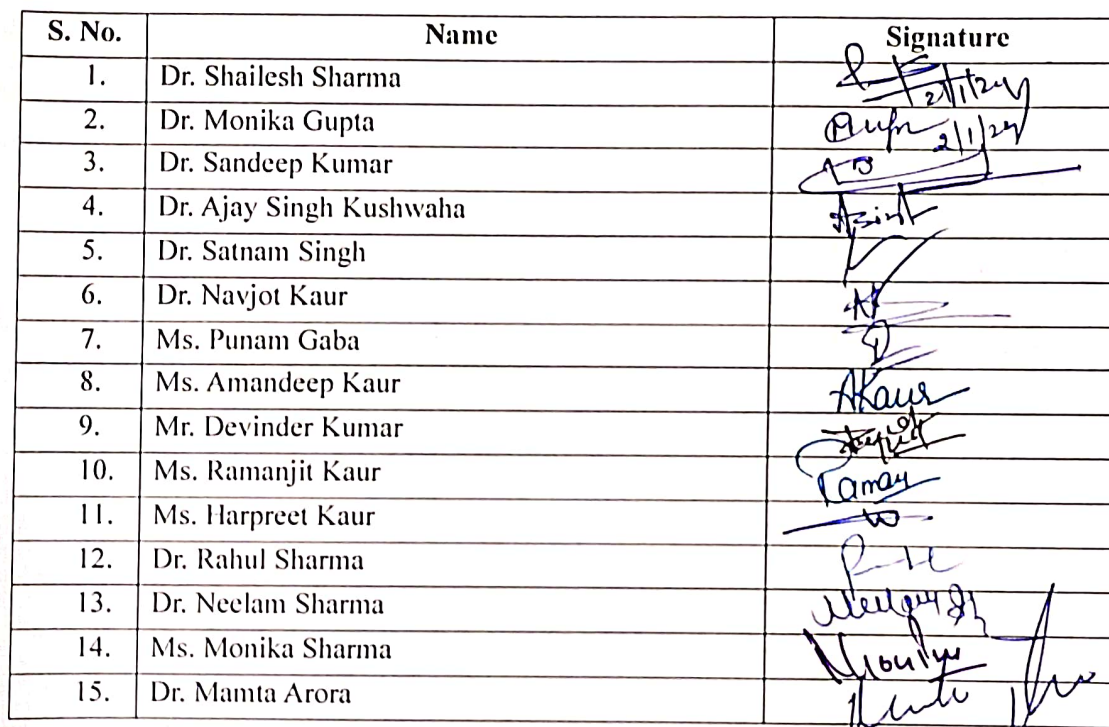 S. No. Name Signature
1. Dr. Shailesh Sharma 2/1/24
2. Dr. Monika Gupta 2/1/24
3. Dr. Sandeep Kumar
4. Dr. Ajay Singh Kushwaha
5. Dr. Satnam Singh
6. Dr. Navjot Kaur
7. Ms. Punam Gaba
8. Ms. Amandeep Kaur AKaur
9. Mr. Devinder Kumar
10. Ms. Ramanjit Kaur Raman
11. Ms. Harpreet Kaur
12. Dr. Rahul Sharma
13. Dr. Neelam Sharma
14. Ms. Monika Sharma
15. Dr. Mamta Arora